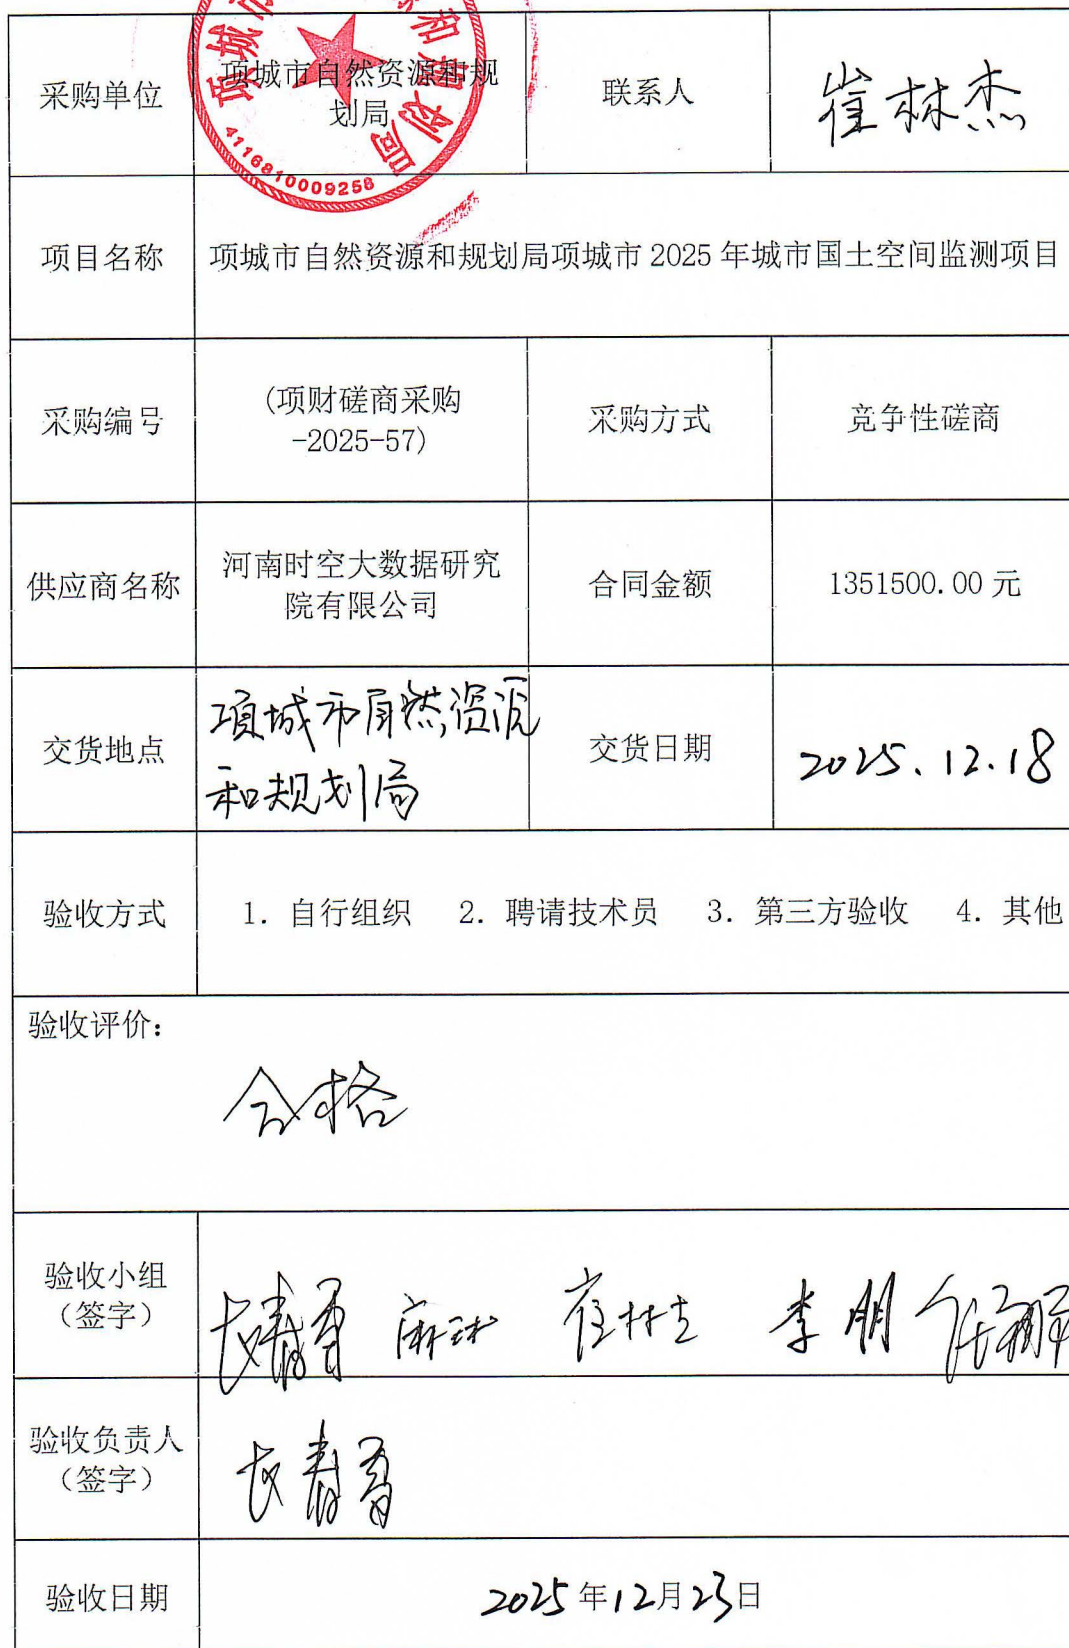 项城市自然资源和规划局
4116810009258
采购单位
项城市自然资源和规
划局
联系人
崔林杰
项目名称
项城市自然资源和规划局项城市 2025 年城市国土空间监测项目
采购编号
(项财磋商采购
-2025-57)
采购方式
竞争性磋商
供应商名称
河南时空大数据研究
院有限公司
合同金额
1351500.00 元
交货地点
项城市自然资源
和规划局
交货日期
2025.12.18
验收方式
1. 自行组织 2. 聘请技术员 3. 第三方验收 4. 其他
验收评价:
合格
验收小组
(签字)
李朋
验收负责人
(签字)
验收日期
2025 年 12 月 23 日